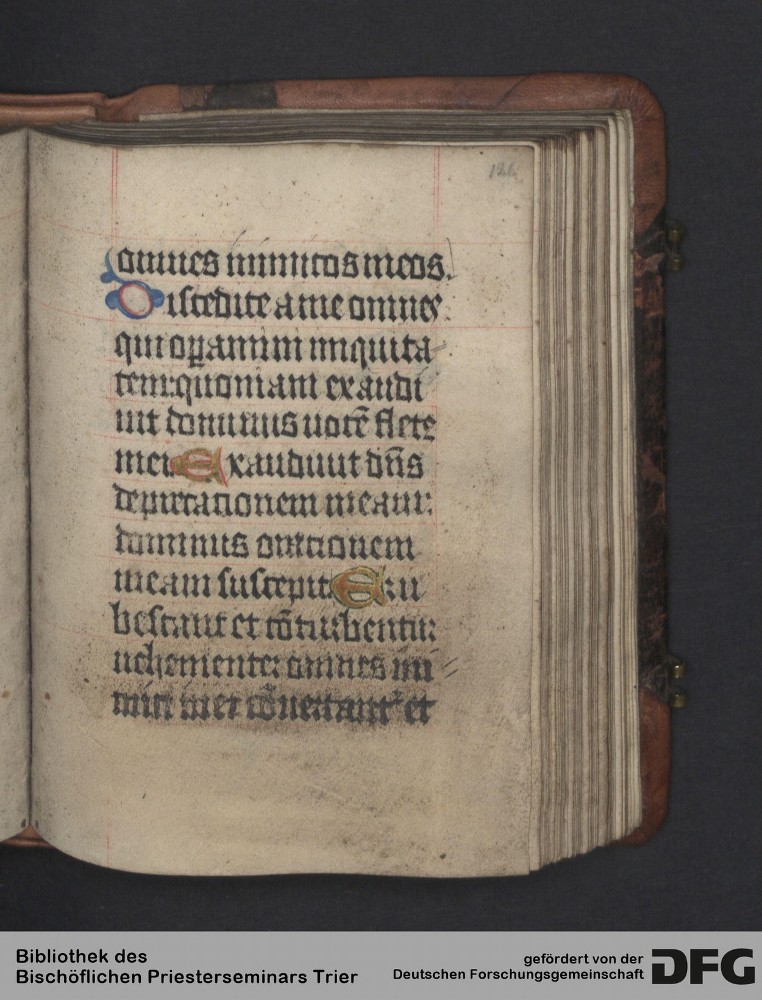 126
omnes inimicos meos.
Discedite a me omnes
qui oꝑamini iniquita
tem: quoniam exaudi
uit dominus uocē flet᷒
mei. Exaudiuit dn̄s
deprecationem meam:
dominus orationem
meam suscepit. Eru
bescant et cōturbentur
uehementer omnes ini
mici mei cōuertant᷑ et
Bibliothek des
Bischöflichen Priesterseminars Trier
gefördert von der
Deutschen Forschungsgemeinschaft
DFG